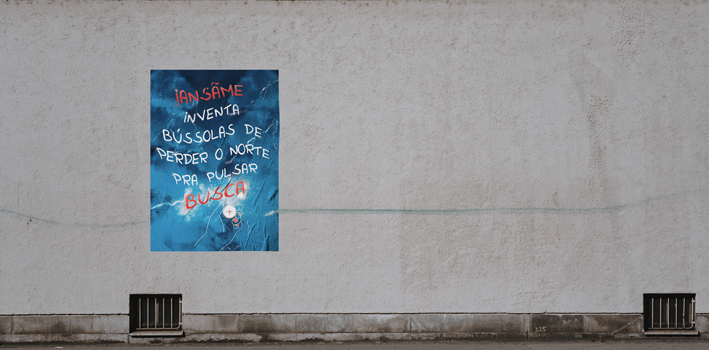 iANSÃME
iNVENTA
BÚSSOLAS DE
PERDER O NORTE
PRA PULSAR
BUSCÁ